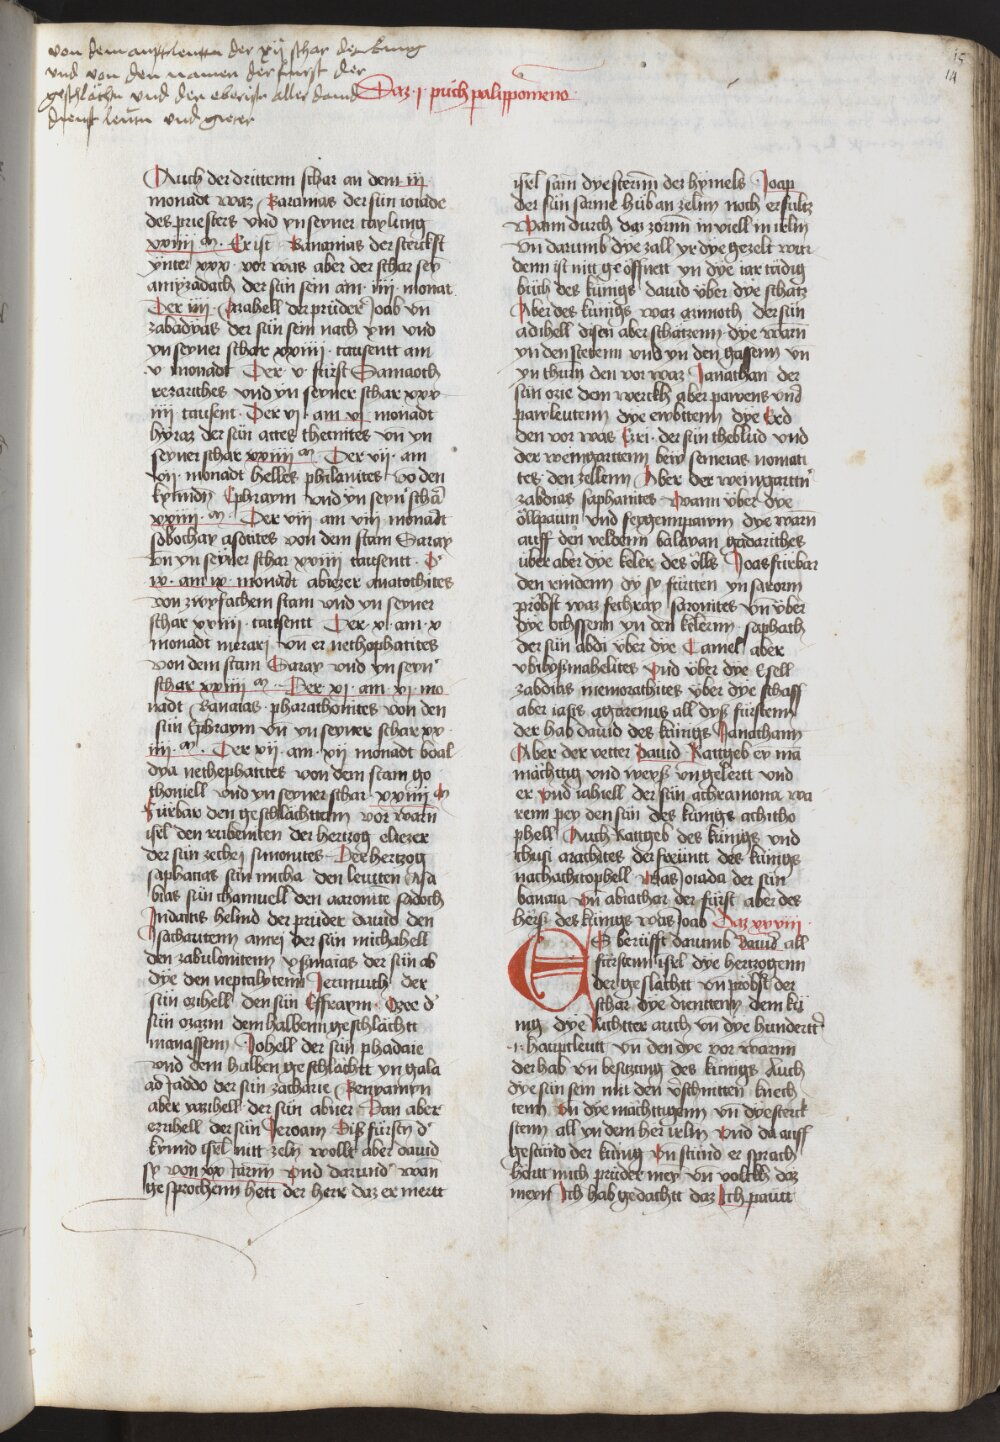 von dem auptleuttn der xij schar der kung
und von den namen der furst der
geschlächt und der eberist aller david
dienst leutn und gieter
15
14
Daz · i · puch paralippomeno
Auch der drittenn schar an dem iij ·
monadt waz Banamas der sün ioiade
des priesters vnd yn seyner taylung
xxiiij m · Er ist Bananias der sterckst
ynter xxx · vor was aber der schar sey
amyzadath der sün sein am · iiij · monat
Der iiij · Azahell der prüder Joab vn̄
zabadyas der sün sein nach ym vnd
yn seyner schar xxiiij · tausentt am
· v · monadt Der · v · fürst Samaoth
iezarithes vnd yn seyner schar xxv
iiij tausent · Der vj · am vj monadt
hyraz der sün actes thecuites vn̄ yn
seyner schar xxiiij m Der vii · am
vii · monadt helles philanites vo den
kyndn̄ Ephraym vnd yn seyn̄ schā
xxiiij · m · Der viii am viii monadt
sobochay asotites von dem stam Saray
vn̄ yn seyner schar xxiiij tausentt · D̄
ix · am ix · monadt abiezer anatothites
von zwyfachem stam vnd yn seyner
schar xxiiij · tausentt Der · x · am · x
monadt merari · vn̄ er nethophatites
von dem stam Saray vnd yn seyn̄
schar xxiiij m · Der · xj · am · xj · mo
nadt Banaias · pharathonites von den
sün Ephraym vn̄ yn seyner schar xx
iiij · m · Der xii · am · xii monadt boal
dya nethephatites von dem stam go
thoniell vnd yn seyner schar xxiiij m
Fürbar den geschlächttenn vor warn̄
isrl den rubeniten der hertzog eliezer
der sün zechrj simonites Der hertzog
saphatias sün micha den leuiten Asa
bias sün chamuell den aaronite sadoch
Judaitis helind der prüder dauid den
Isacharitenn amrj der sün michahell
den zabulonitenn ysmaias der sün ab
dye den neptalytenn Jerimuth der
sün ozihell den sün Effraym · Ozee d̄
sün ozazin dem halbenn geschlächtt
manassenn Johell der sün phadaie
vnd dem halben geschlächtt yn gala
ad Jaddo der sün zacharie Benyamyn
aber iazihell der sün abner Dan aber
ezrihell der sün Jeroam Diß fürsten d̄
kynnd isrl nitt zeln wollt aber dauid
sy von xx Jarnn Vnd darund wan
gesprochenn hett der herr daz er mertt
isrl sam dye sternn̄ der hymels Joap
der sün saruie hüb an zeln noch erfultz
Wann durch daz zornn̄ in viell in isrln
vn̄ darumb dye zall yr dye gezelt wur
denn ist nitt geöffnett yn dye iar tädig
büch des künigs dauid vber dye schätz
Aber des künigs waz azmoth der sün
adihell disen aber schatzenn dye warn̄
yn den stetenn vnd yn den gassenn vn̄
yn thurn den vor waz Janathan der
sün ozie dem werckh aber pawens vnd̄
pawleutenn dye erwbttenn dye Erd
den vor was Ezri · der sün theblud vnd
der weingarttenn bew semeias nomati
tes · den zellenn Aber der weingarttn̄
zabdias saphanites Wann vber dye
öllpaum vnd feygempawm dye warn̄
auff den veldenn balayan gadarithes
vber aber dye keler des ölls Joas fürbar
den rindenn dy sy fürtten yn saronn
pröbst waz sethray saronites vn̄ vber
dye ochssenn yn den kelernn · saphath
der sün abdi vber dye Camel aber
vbilyßmahelites Vnd vber dye Esell
zabdias memorathites vber dye schaff
aber iaziß agarenus all dyß fürstenn
der hab dauid des künigs Janathann
Aber der vetter Dauid Rattgeb ey mā
mächttig vnd weyß vn̄ gelertt vnd
er Vnd iahiell der sün achramona wa
renn pey den sün des künigs achitho
phell Auch Rattgeb des künigs vnd
chusi arachites der freuntt des künigs
nach achitophell Was joiada der sün
banaia Vn̄ abiathar der fürst aber des
hörß des künigs was Joab Daz xxviii ·
ES berüfft darumb dauid all
fürstenn isrl dye hertzogenn
der geslächtt vn̄ pröbst der
schar dye dienttenn dem kü
nig dye Richtter auch vn̄ dye hundertt
· i · hauptleutt vn̄ den dye vor warnn̄
der hab vn̄ besitzung des künigs Auch
dye sün sein mit den v̄schnitten knech
tenn Vn̄ dye mächttigenn vn̄ dye sterck
stenn all yn dem her isrln Vnd da auff
gestünd der künig Vn̄ stünd er sprach
hörtt mich prüder mey vn̄ volckh daz
meyn Ich hab gedachtt daz Ich pautt